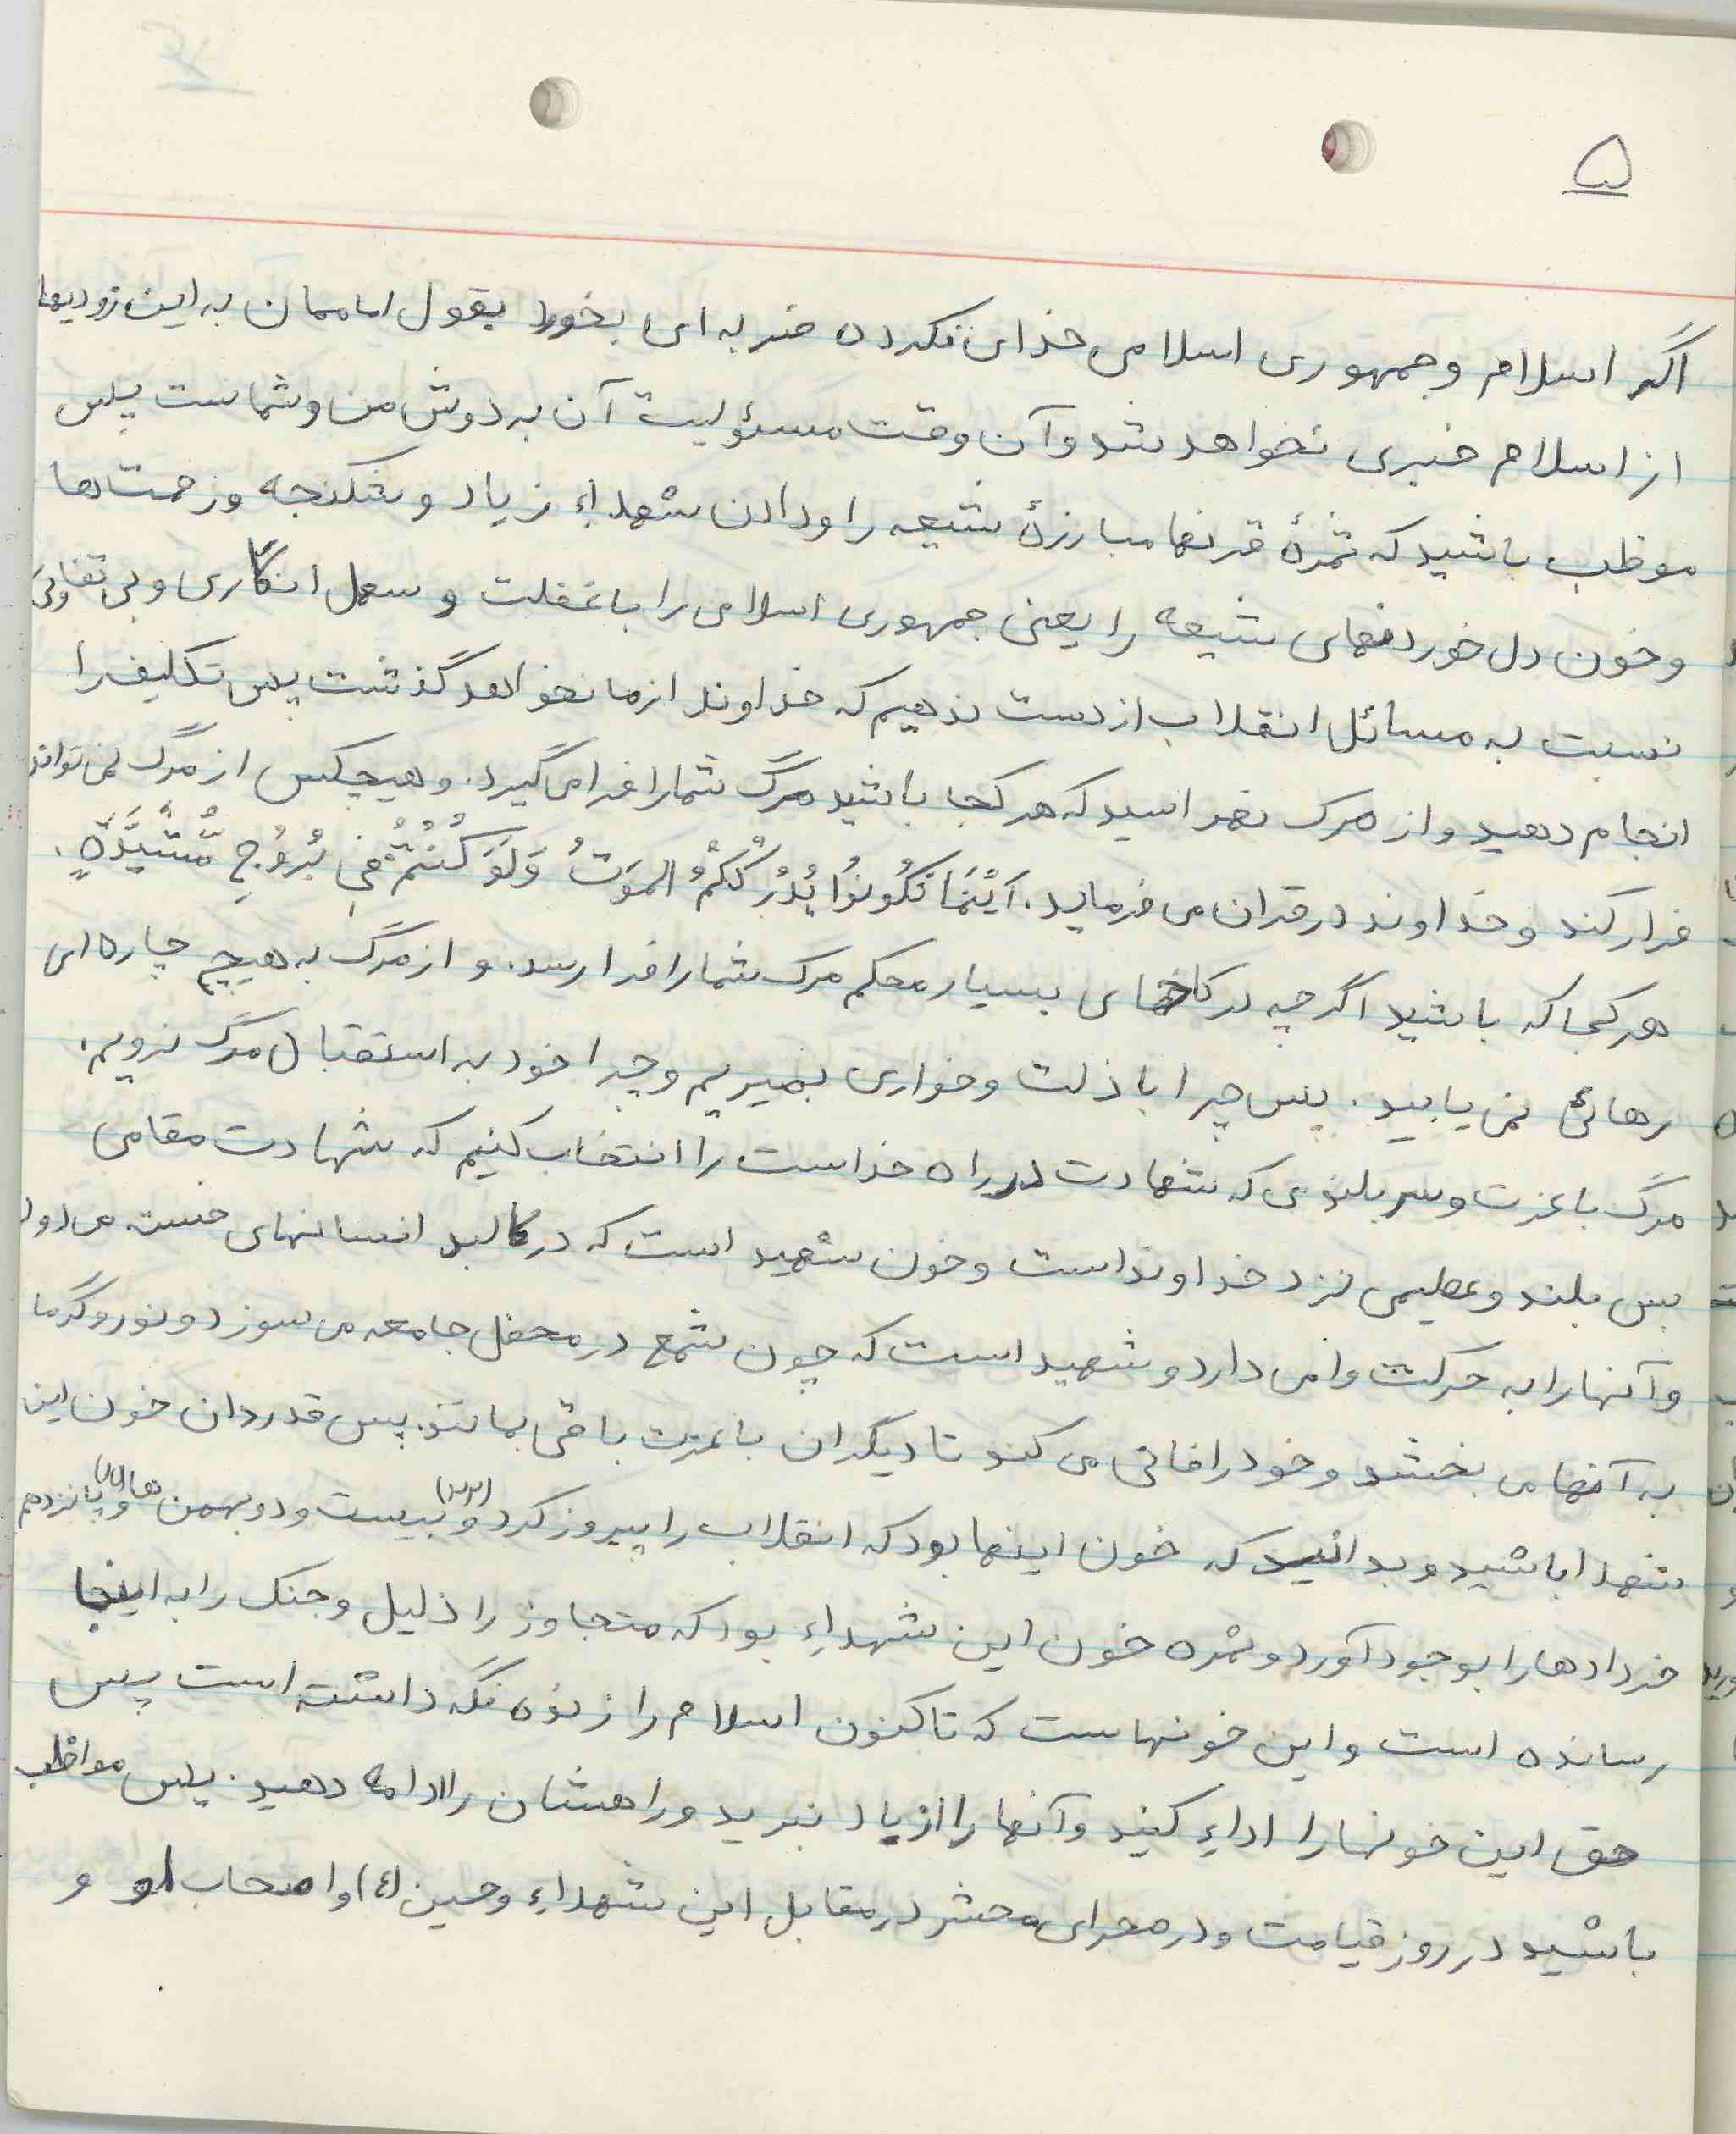 ۵
اگر اسلام و جمهوری اسلامی خدای نکرده ضربه ای بخورد بقول اماممان به این زودیها
از اسلام خبری نخواهد شد و آن وقت مسئولیت آن به دوش من و شماست پس
موظب باشید که ثمرۀ قرنها مبارزۀ شیعه را و دادن شهداء زیاد و شکنجه و زحمت ها
و خون دل خوردنهای شیعه را یعنی جمهوری اسلامی را با غفلت و سهل انگاری و بی تفاوتی
نسبت به مسائل انقلاب از دست ندهیم که خداوند از ما نخواهد گذشت پس تکلیف را
انجام دهید و از مرگ نهراسید که هر کجا باشید مرگ شما را فرا می گیرد. و هیچکس از مرگ نمی تواند
فرار کند و خداوند در قران می فرماید. اَیْنَمَا تَکُونُوا یُدْرِکْکُمُ المَوتُ وَلَوْ کُنْتُمْ فِی بُرُوُجٍ مُّشَیَّدَةٍ.
هر کجا که باشید اگر چه در کاخهای بسیار محکم مرگ شما را فرا رسد. و از مرگ به هیچ چاره ای
رهائی نمی یابید. پس چرا با ذلت و خواری بمیریم و چرا خود به استقبال مرگ نرویم.
مرگ با عزت و سربلندی که شهادت در راه خداست را انتخاب کنیم که شهادت مقامی
بس بلند و عظیمی نزد خداوند است و خون شهید است که در کالبد انسانهای خسته می دود
و آنها را به حرکت وا می دارد و شهید است که چون شمع در محفل جامعه می سوزد و نور و گرما
به آنها می بخشد و خود را فانی می کند تا دیگران با عزت باقی بمانند. پس قدردان خون این
شهدا باشید و بدانید که خون اینها بود که انقلاب را پیروز کرد و (۲۲) بیست و دو بهمن ها و (۱۵) پانزدهم
خردادها را بوجود آورد و ثمره خون این شهداء بود که متجاوز را ذلیل و جنگ را به اینجا
رسانده است و این خونهاست که تاکنون اسلام را زنده نگه داشته است پس
حق این خونها را اداء کنید و آنها را از یاد نبرید و راهشان را ادامه دهید. پس مواظب
باشید در روز قیامت و در صحرای محشر در مقابل این شهداء و حسین (ع) و اصحاب او و